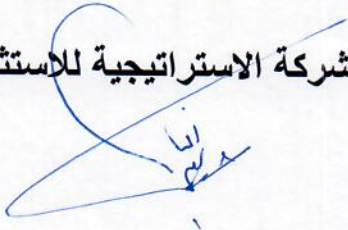 شركة الاستراتيجية للاستث